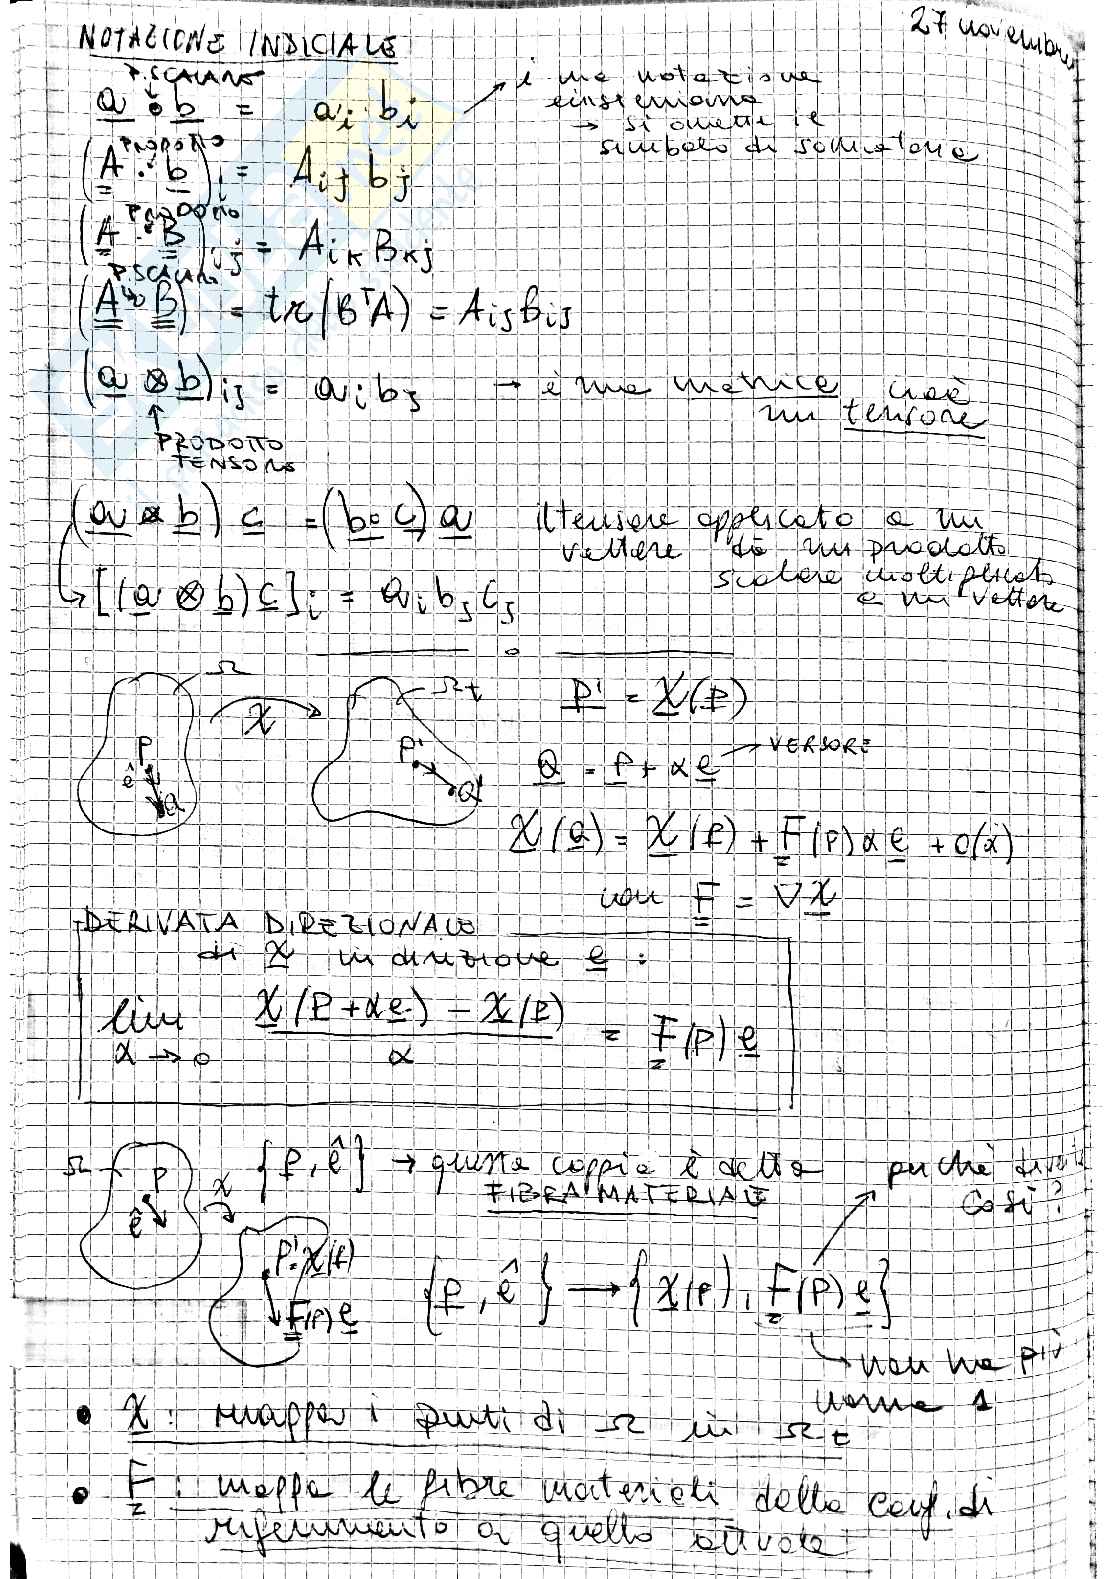 27 novembre
NOTAZIONE INDICIALE
P. SCALARE
a • b = ai bi → è una notazione
einsteniana
→ si omette il
simbolo di sommatoria
PRODOTTO
(A · b)i = Aij bj
PRODOTTO
(A · B)ij = Aik Bkj
P. SCALARE
(A • B) = tr(BᵀA) = Aij Bij
(a ⊗ b)ij = ai bj → è una matrice cioè
un tensore
PRODOTTO
TENSORE
(a ⊗ b) c = (b • c) a il tensore applicato a un
vettore dà un prodotto
scalare moltiplicato
a un vettore
[(a ⊗ b) c]i = ai bj cj
Ω χ Ωt
P ê Q P' Q'
P' = χ(P)
Q = P + α e → VERSORE
χ(Q) = χ(P) + F(P) α e + o(α)
con F = ∇χ
DERIVATA DIREZIONALE
di χ in direzione e :
lim χ(P + αe) − χ(P) = F(P) e
α → 0 α
Ω P ê χ {P, ê} → questa coppia è detta perché
FIBRA MATERIALE così?
P' = χ(P)
F(P) e
{P, ê} → {χ(P), F(P) e}
non ha più
norma 1
• χ : mappa i punti di Ω in Ωt
• F : mappa le fibre materiali dalla conf. di
riferimento a quella attuale